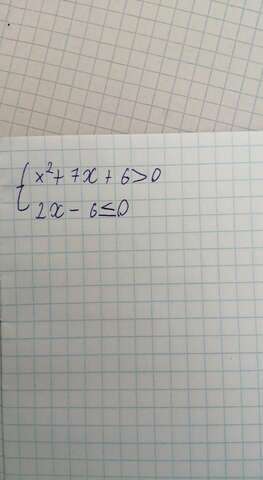 { x²+ 7x + 6>0
2x - 6≤0